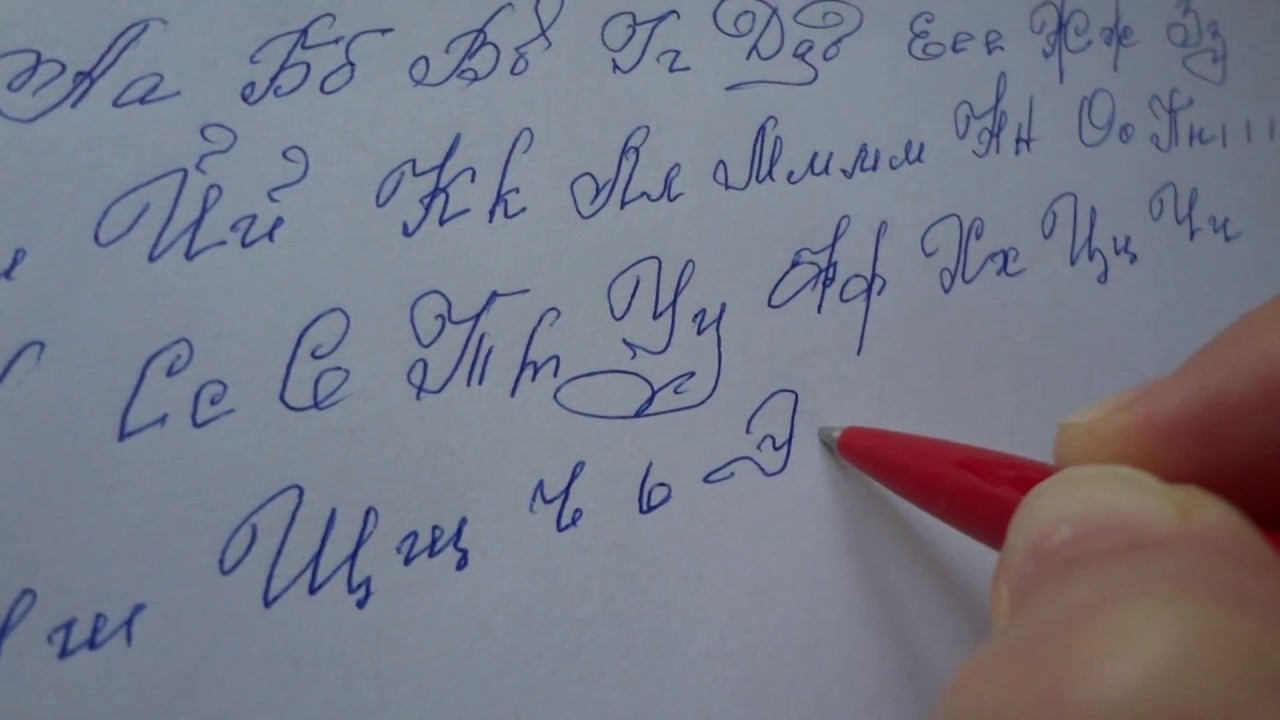 Аа Бб Вв Гг Дд д Ее е Жж Зз
и Йй Кк Лл Мм м м Нн Оо Пп
Сс Сс Тт т Уу Фф Хх Цц Чч
ш Щщ ъ ь Э